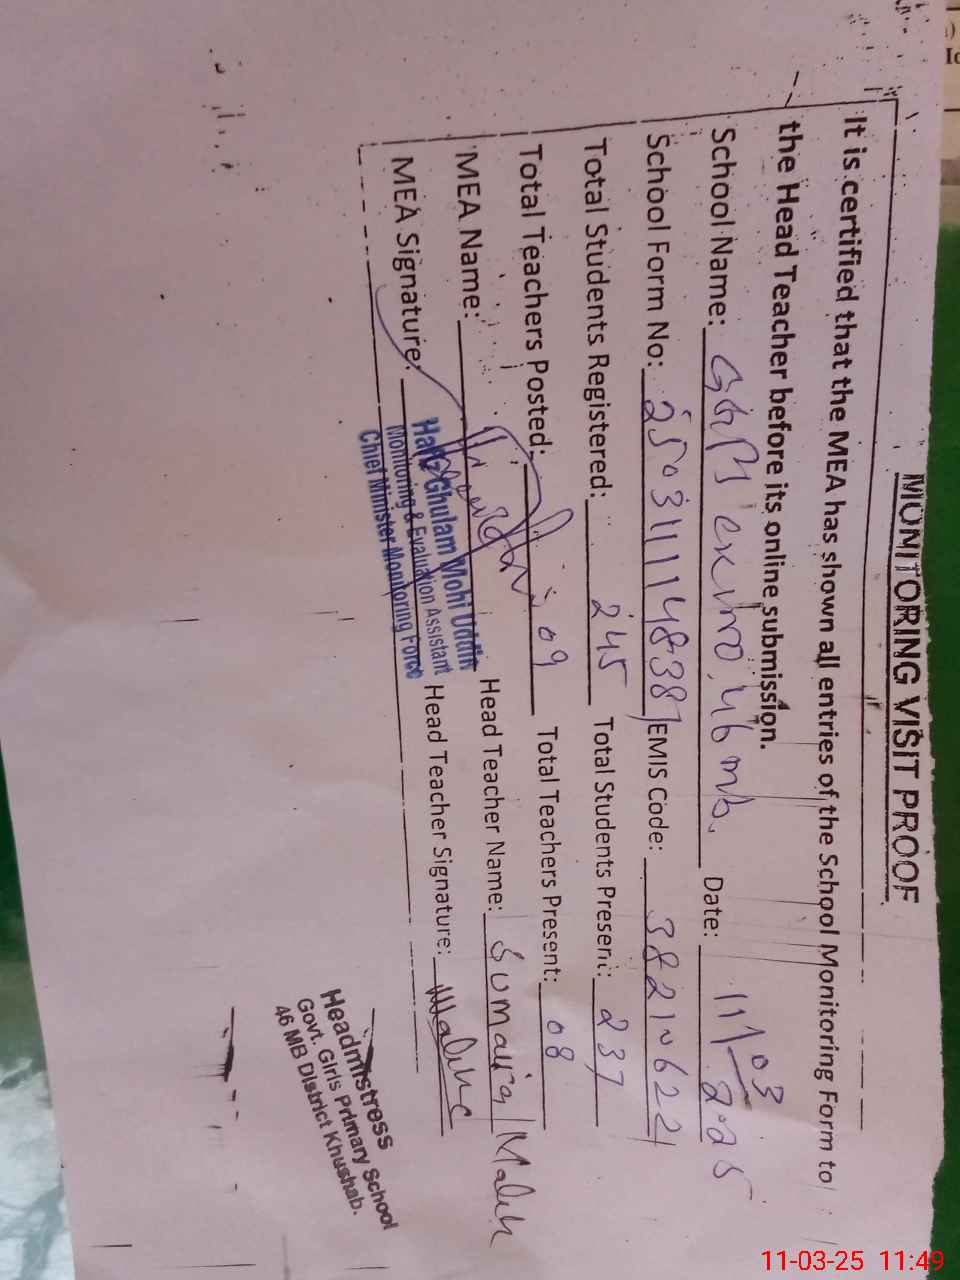 MONITORING VISIT PROOF
It is certified that the MEA has shown all entries of the School Monitoring Form to
the Head Teacher before its online submission.
School Name: GGPS 46 mb. Date: 11/03 2025
School Form No: EMIS Code: 38210622
Total Students Registered: 245 Total Students Present: 237
Total Teachers Posted: 09 Total Teachers Present: 08
MEA Name: Head Teacher Name: Sumaira Malik
MEA Signature: Head Teacher Signature: Malik
Hafiz Ghulam Mohi Uddin
Monitoring & Evaluation Assistant
Chief Minister Monitoring Force
Headmistress
Govt. Girls Primary School
46 MB District Khushab.
11-03-25 11:49